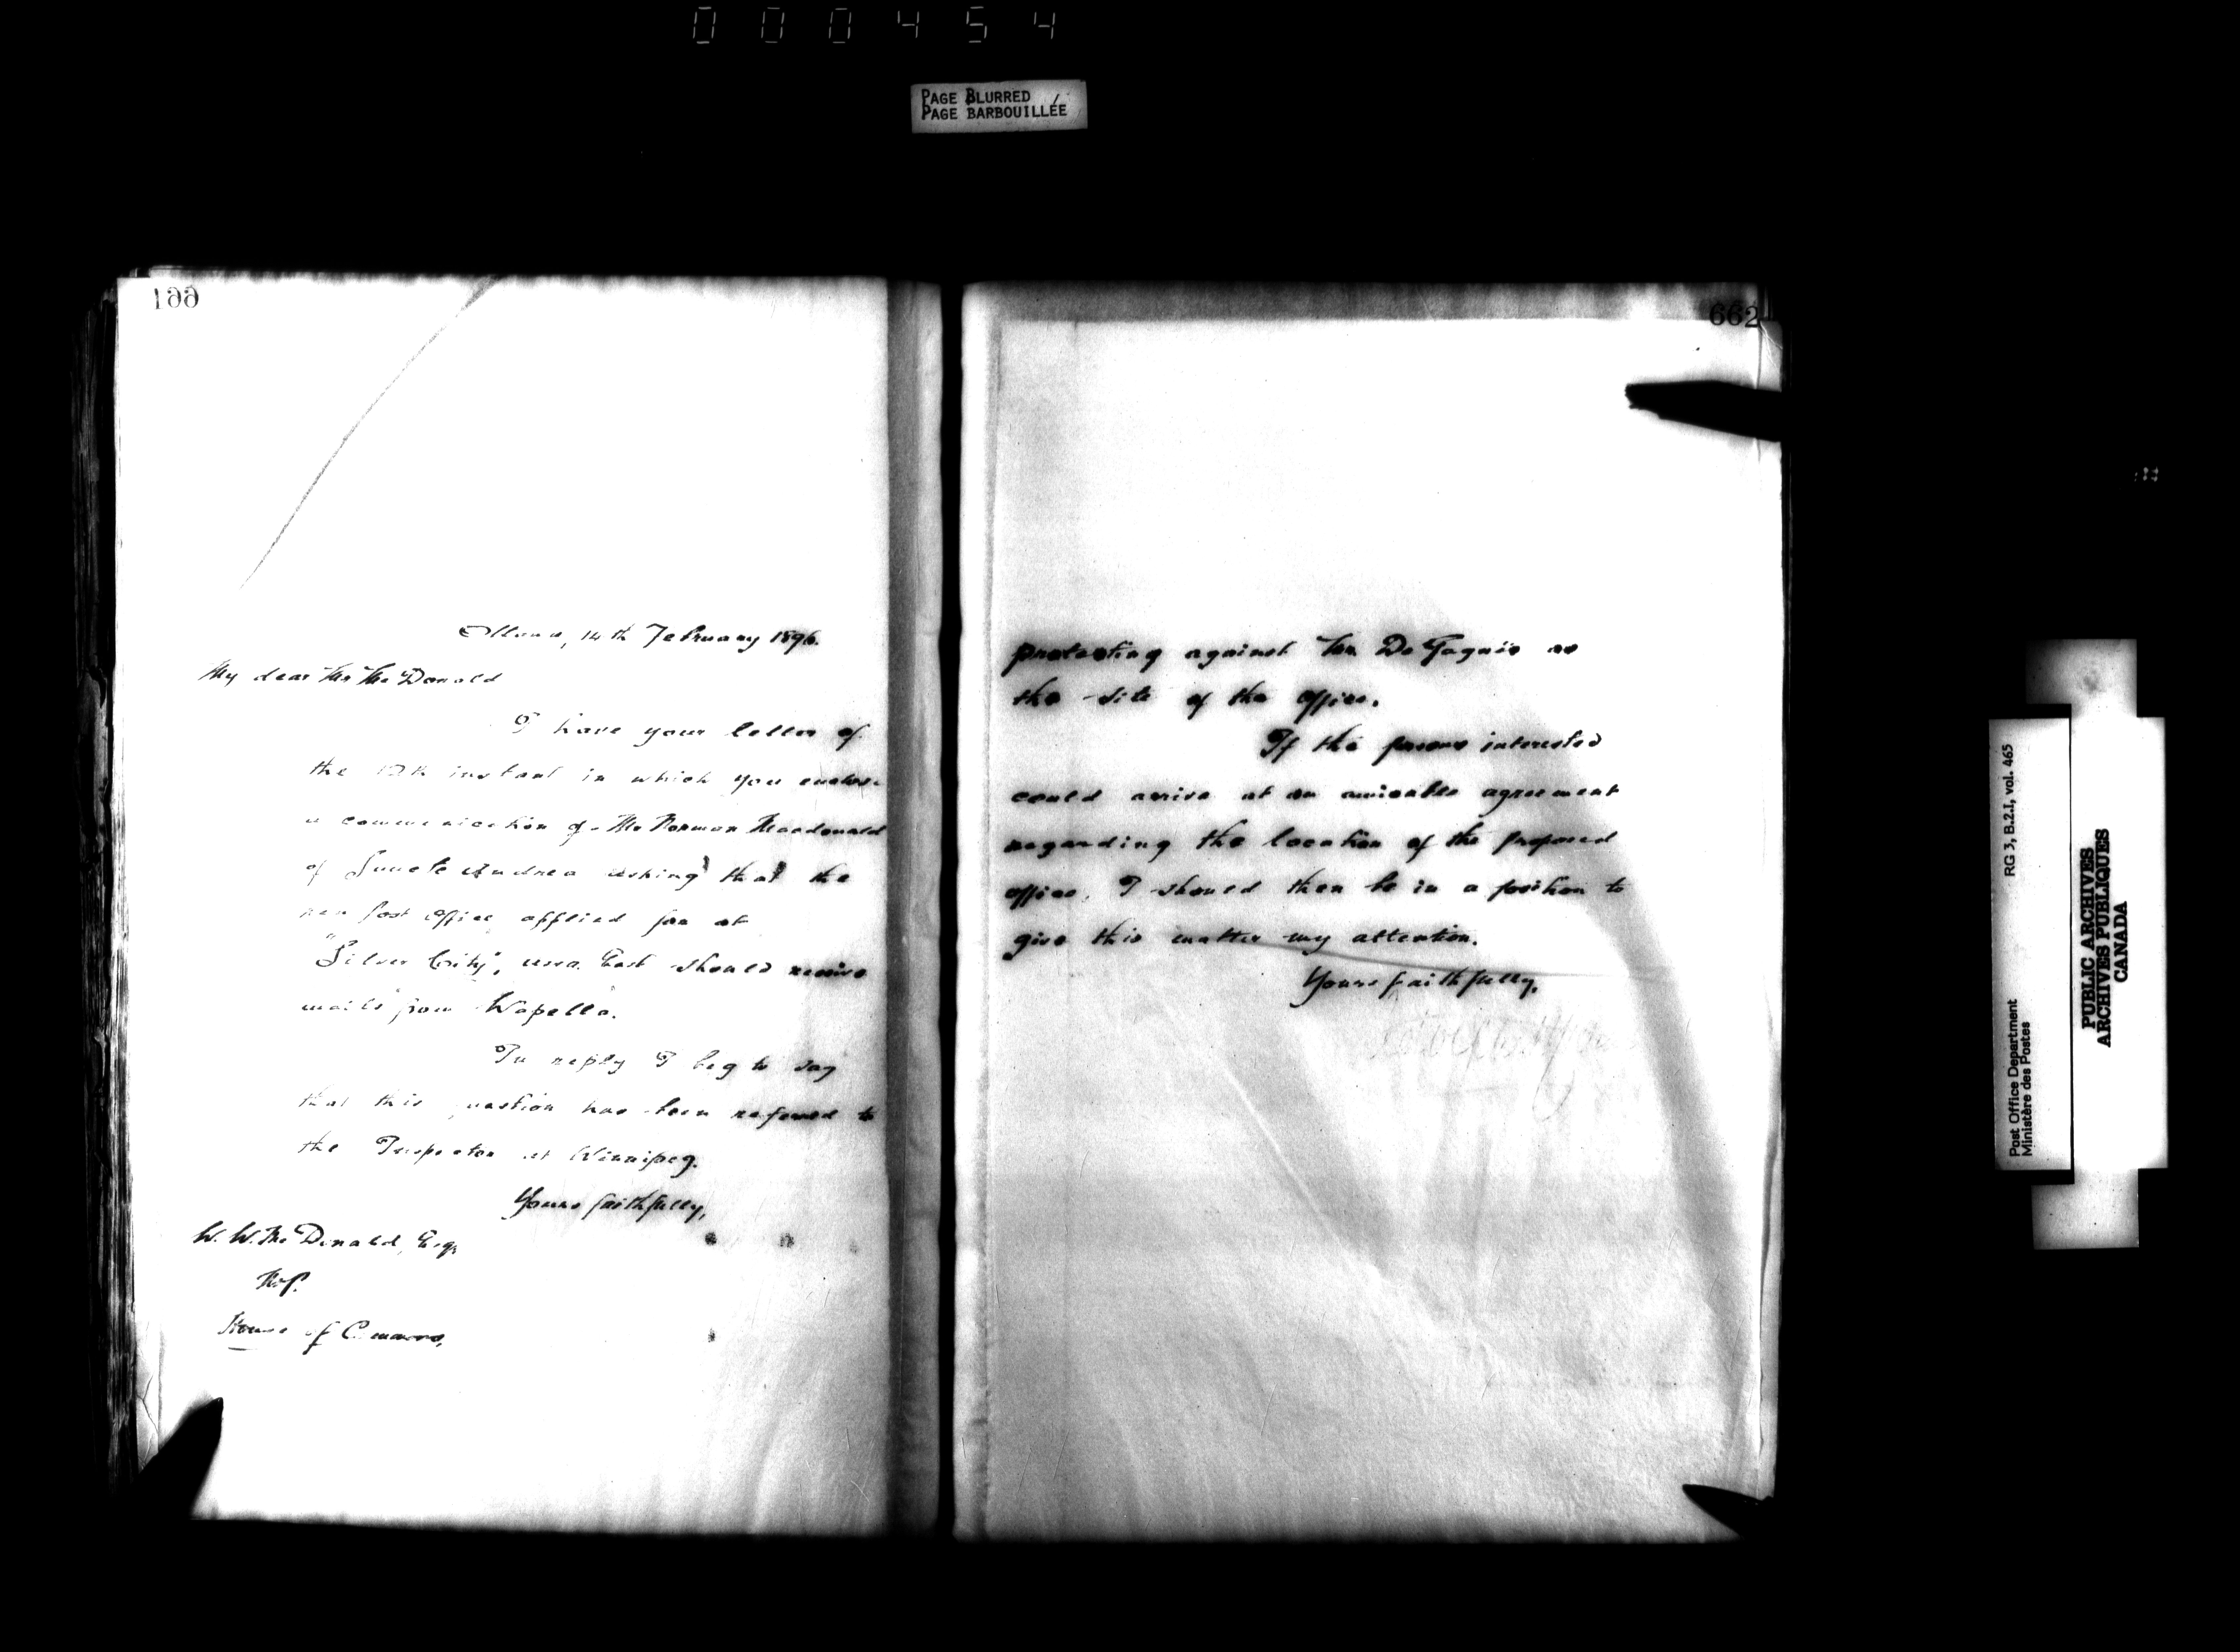 000454
PAGE BLURRED
PAGE BARBOUILLÉE
Ottawa, 14th February 1896.
My dear Mr McDonald
I have your letter of
the 12th instant in which you enclose
a communication of Mr Norman Macdonald
of Sancte Andrea asking that the
new post office applied for at
"Silver City", Assa. East should receive
mails from Wapella.
In reply I beg to say
that this question has been referred to
the Inspector at Winnipeg.
Yours faithfully,
W. W. McDonald, Esq,
M.P.
House of Commons,
662
protesting against Mr. De Gagnés as
the site of the office.
If the persons interested
could arrive at an amicable agreement
regarding the location of the proposed
office, I should then be in a position to
give this matter my attention.
Yours faithfully,
Post Office Department RG 3, B.2.I, vol. 465
Ministère des Postes
PUBLIC ARCHIVES
ARCHIVES PUBLIQUES
CANADA